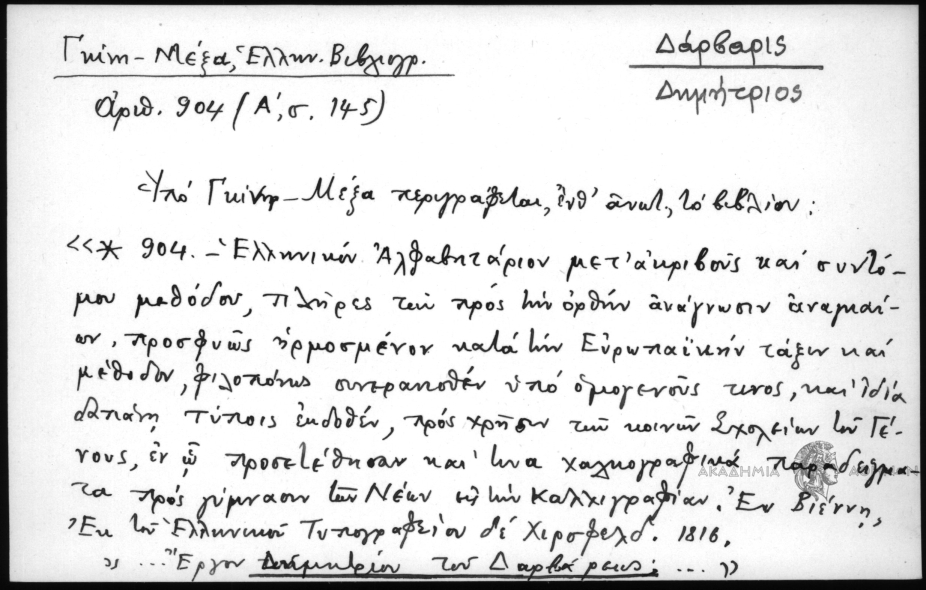 Γκίνη - Μέξα, Ἑλλην. Βιβλιογρ.
Δάρβαρις
Δημήτριος
ἀριθ. 904 (Α', σ. 145)
Ὑπό Γκίνη - Μέξα περιγράφεται, ἐνθ' ἀνωτ., τό βιβλίον :
<<* 904. - Ἑλληνικόν Ἀλφαβητάριον μετ' ἀκριβοῦς καί συντό-
μου μεθόδου, πλῆρες τῶν πρός τήν ὀρθήν ἀνάγνωσιν ἀναγκαί-
ων, προσφυῶς ἡρμοσμένον κατά τήν Εὐρωπαϊκήν τάξιν καί
μέθοδον, φιλοπόνως συνερανισθέν ὑπό ὁμογενοῦς τινος, καί ἰδίᾳ
δαπάνῃ τύποις ἐκδοθέν, πρός χρῆσιν τῶν κοινῶν Σχολείων τοῦ Γέ-
νους, ἐν ᾧ προσετέθησαν καί τινα χαλκογραφικά παραδείγμα-
τα πρός γύμνασιν τῶν Νέων εἰς τήν Καλλιγραφίαν. Ἐν Βιέννῃ,
Ἐκ τοῦ Ἑλληνικοῦ Τυπογραφείου δέ Χιρσφελδ. 1816.
>> ... Ἔργον Δημητρίου τοῦ Δαρβάρεως. ... >>
ΑΚΑΔΗΜΙΑ